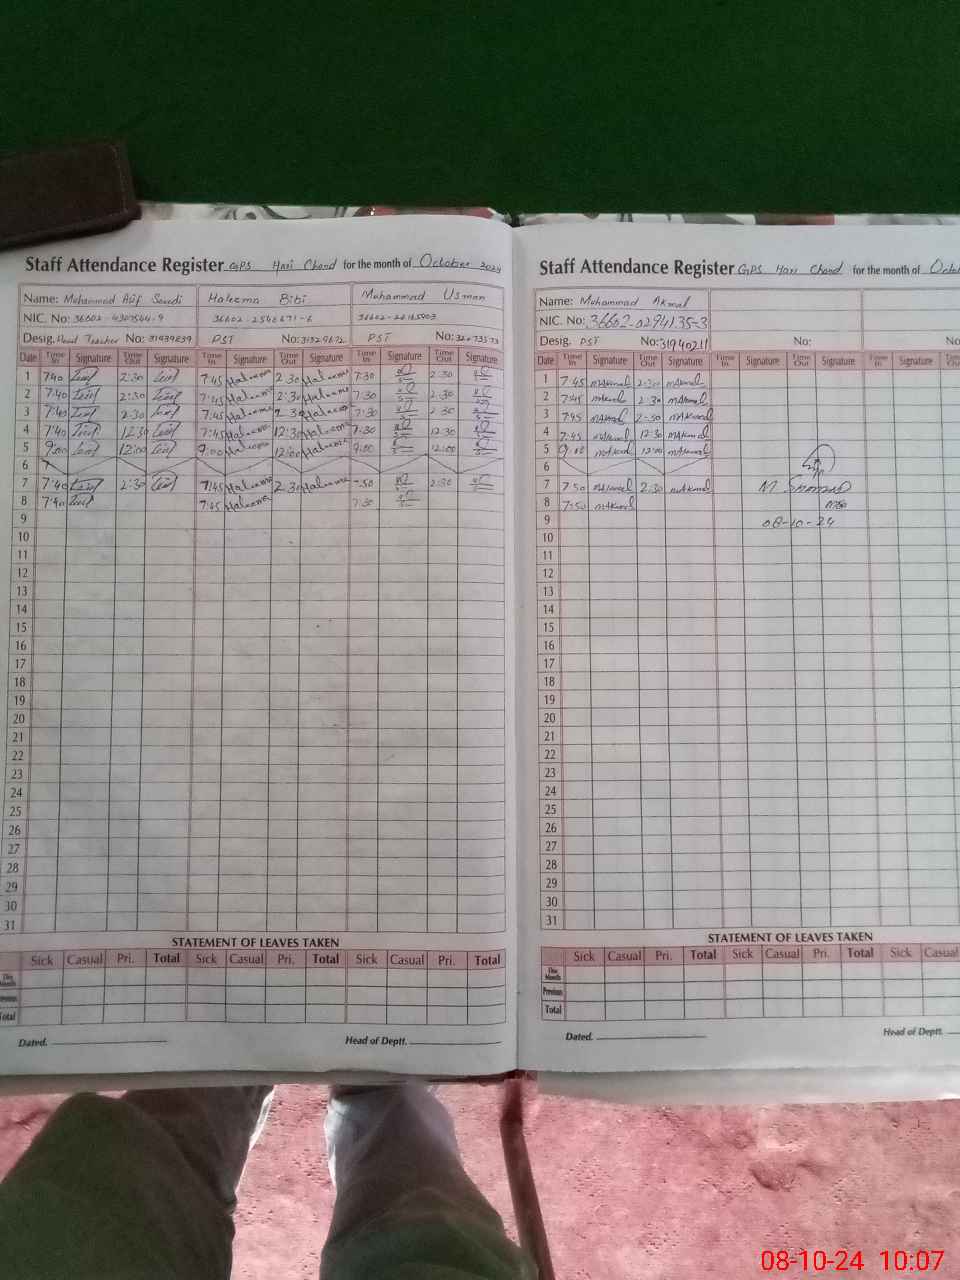 Staff Attendance Register GPS Hari Chand for the month of October 2024
Name: Mohammad Atif Saeedi Haleema Bibi Mohammad Usman
NIC. No: 36602-2540671-6
Desig. Head Teacher No: PST No: PST No:
Date Time In Signature Time Out Signature Time In Signature Time Out Signature Time In Signature Time Out Signature
1 7:40 2:30 7:45 Haleema 2:30 Haleema 7:30 2:30
2 7:40 2:30 7:45 Haleema 2:30 Haleema 7:30 2:30
3 7:40 2:30 7:45 Haleema 2:30 Haleema 7:30 2:30
4 7:40 12:30 7:45 Haleema 12:30 Haleema 7:30 12:30
5 9:00 12:00 9:00 Haleema 12:00 Haleema 9:00 12:00
6
7 7:40 2:30 7:45 Haleema 2:30 Haleema 2:30
8 7:40 7:45 Haleema 7:30
9
10
11
12
13
14
15
16
17
18
19
20
21
22
23
24
25
26
27
28
29
30
31
STATEMENT OF LEAVES TAKEN
Sick Casual Pri. Total Sick Casual Pri. Total Sick Casual Pri. Total
This Month
Previous
Total
Dated. Head of Deptt.
Staff Attendance Register GPS Hari Chand for the month of Octo
Name: Mohammad Akmal
NIC. No: 36602-0294135-3
Desig. PST No: 31940211 No: No
Date Time In Signature Time Out Signature Time In Signature Time Out Signature Time In Signature Time Out
1 7:45 mAkmal 2:30 mAkmal
2 7:45 mAkmal 2:30 mAkmal
3 7:45 mAkmal 2:30 mAkmal
4 7:45 mAkmal 12:30 mAkmal
5 9:00 mAkmal 12:00 mAkmal
6
7 7:50 mAkmal 2:30 mAkmal
8 7:50 mAkmal
9 08-10-24
10
11
12
13
14
15
16
17
18
19
20
21
22
23
24
25
26
27
28
29
30
31
STATEMENT OF LEAVES TAKEN
Sick Casual Pri. Total Sick Casual Pri. Total Sick Casual
This Month
Previous
Total
Dated. Head of Deptt.
08-10-24 10:07